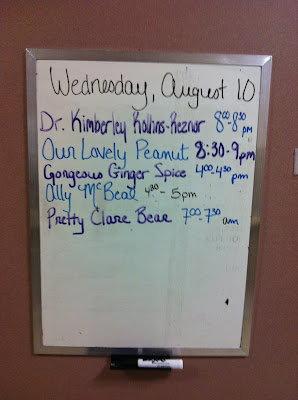 Wednesday, August 10
Dr. Kimberley Kollins-Reznor 8:00-8:30 pm
Our Lovely Peanut 8:30-9pm
Gorgeous Ginger Spice 4:00-4:30 pm
Ally McBeal 4:30 - 5pm
Pretty Clare Bear 7:00-7:30 am